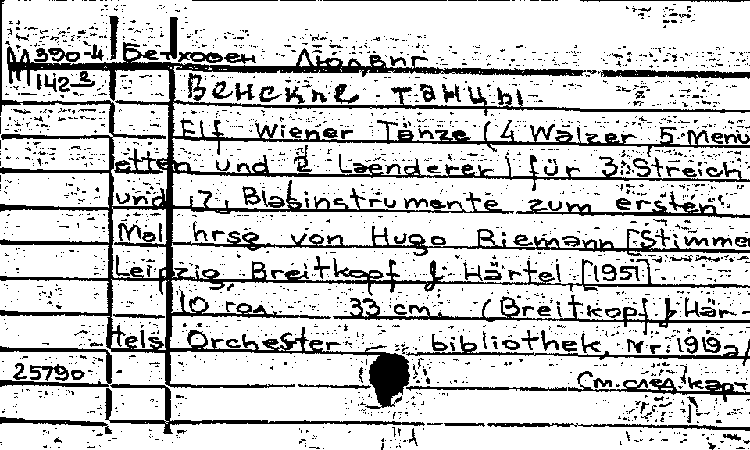 М 390-4 Бетховен Людвиг
142-2 Венские танцы
Elf Wiener Tänze (4 Walzer, 5 Menu
etten und 2 Laenderer) für 3 Streich
und 7 Blasinstrumente zum ersten
Mal hrsg von Hugo Riemann [Stimmen
Leipzig, Breitkopf & Härtel, [1951].
10 гол. 33 cm. (Breitkopf & Här-
tels Orchester bibliothek, Nr. 1919a/
25790 См. след. карт